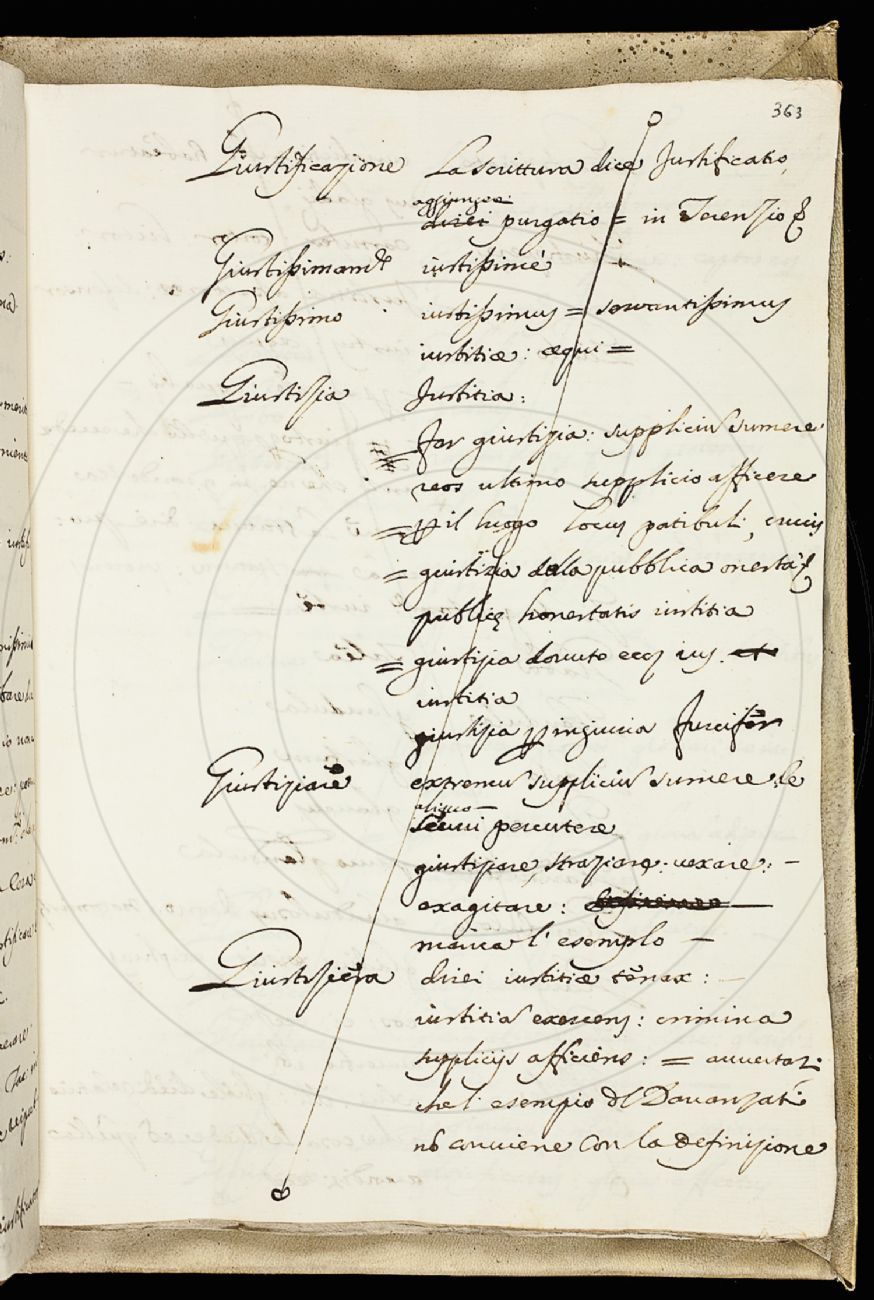 363
Giustificazione La scrittura dice Justificatio,
aggiungere
direi purgatio = in Terenzio
Giustissimamte iustissimè
Giustissimo iustissimus = servantissimus
iustitiæ: æqui =
Giustizia Justitia:
Far giustizia: suppliciu sumere
reos ultimo supplicio afficere
= pp il luogo locus patibuli, crucis
= giustizia della pubblica onestà
publicę honestatis iustitia
= giustizia dovuto ius. et
iustitia
giustizia pp ingiuria
Giustiziare extremu suppliciu sumere: de
aliquo —
securi percutere
giustiziare, straziare: vexare: —
exagitare:
manca l'esempio —
Giustiziera direi iustitiæ tenax: —
iustitia exercens: crimina
supplicijs afficiens: = avvertasi
che l'esempio dl Davanzati
nō conviene con la definizione